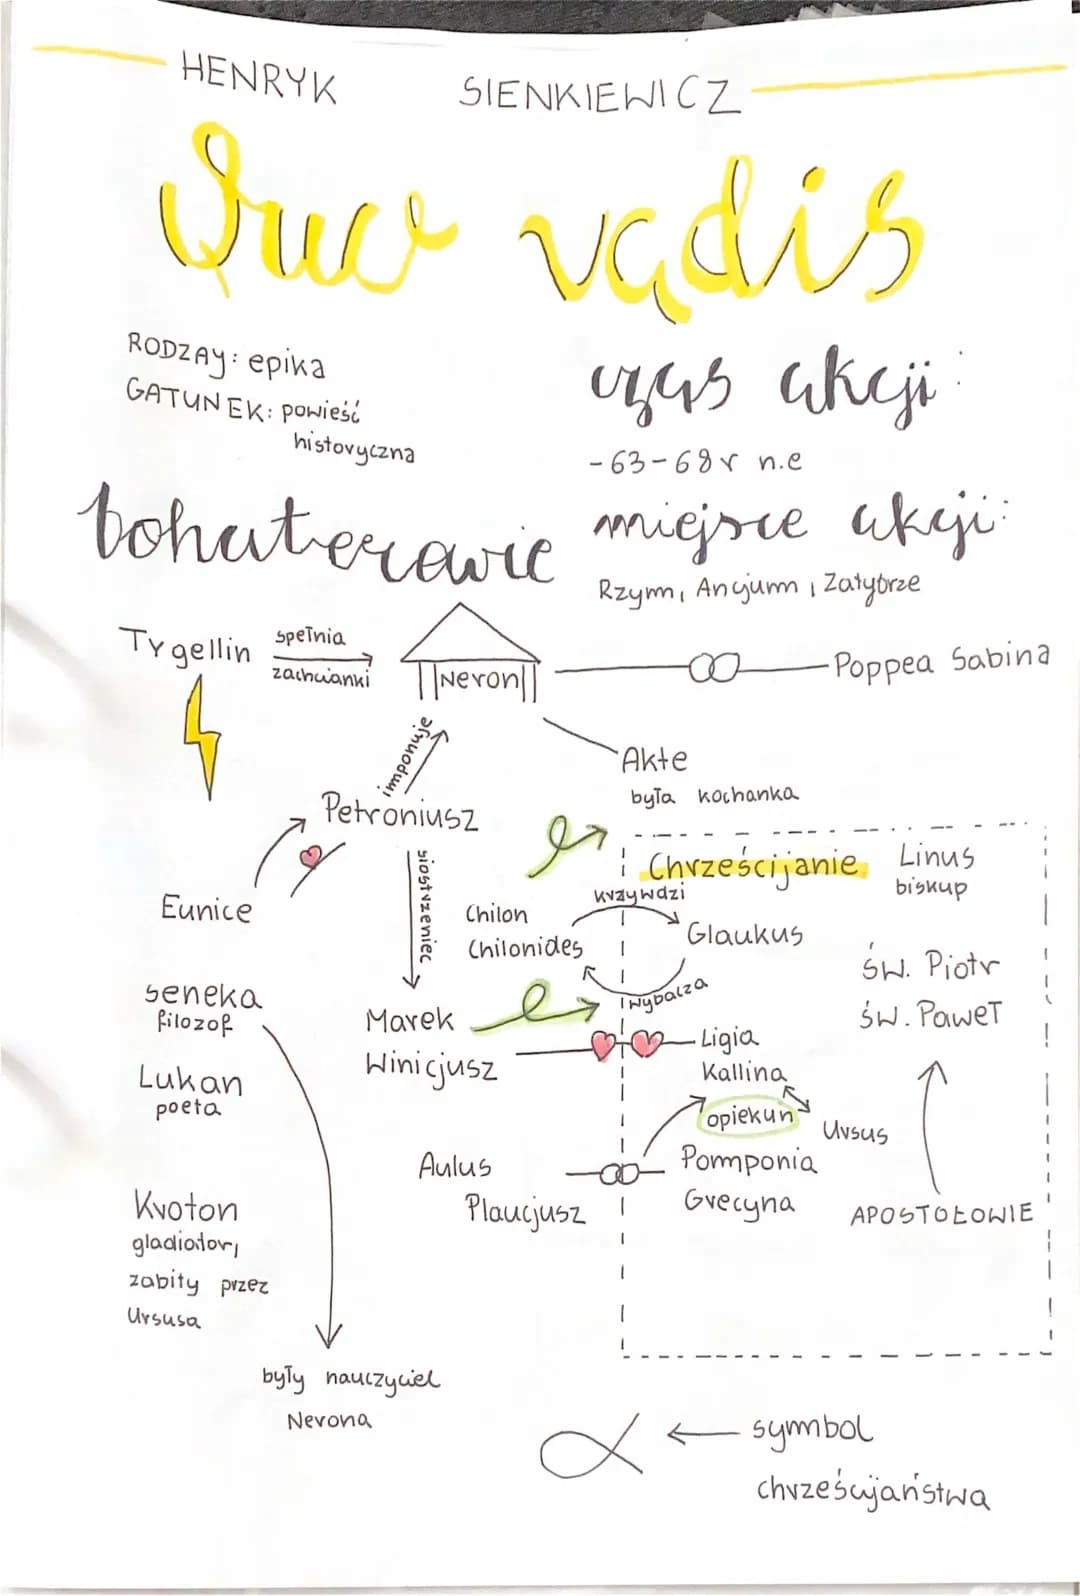 HENRYK SIENKIEWICZ
Quo vadis
RODZAJ: epika
GATUNEK: powieść
historyczna
czas akcji:
-63-68r n.e
miejsce akcji:
Rzym, Ancjum, Zatybrze
bohaterowie
Tygellin
spełnia
zachcianki
Neron
Poppea Sabina
Akte
była kochanka
imponuje
Petroniusz
siostrzeniec
Eunice
Chrześcijanie
Linus
biskup
Chilon
Chilonides
krzywdzi
Glaukus
wybacza
św. Piotr
św. Paweł
APOSTOŁOWIE
seneka
filozof
Marek
Winicjusz
Ligia
Kallina
opiekun
Ursus
Lukan
poeta
Aulus
Plaucjusz
Pomponia
Grecyna
Kroton
gladiator,
zabity przez
Ursusa
były nauczyciel
Nerona
symbol
chrześcijaństwa